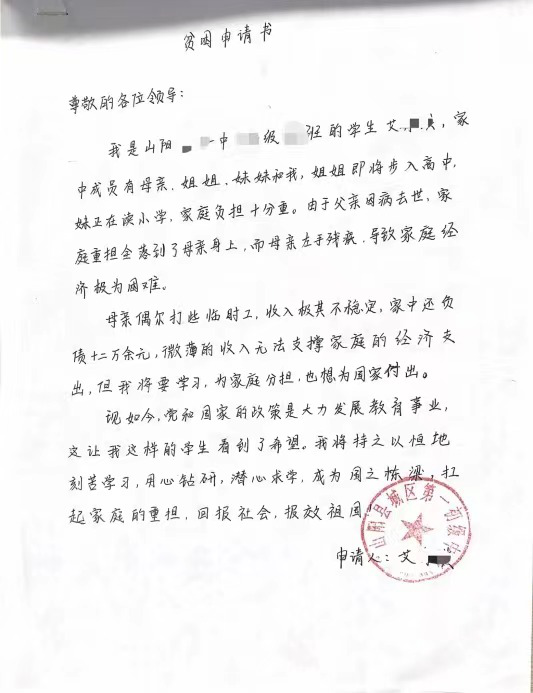 贫困申请书
尊敬的各位领导:
我是山阳 一中 级 班的学生艾 ,家
中成员有母亲、姐姐、妹妹和我,姐姐即将步入高中,
妹正在读小学,家庭负担十分重。由于父亲因病去世,家
庭重担全落到了母亲身上,而母亲左手残疾,导致家庭经
济极为困难。
母亲偶尔打些临时工,收入极其不稳定,家中还负
债十二万余元,微薄的收入无法支撑家庭的经济支
出,但我将要学习,为家庭分担,也想为国家付出。
现如今,党和国家的政策是大力发展教育事业,
这让我这样的学生看到了希望。我将持之以恒地
刻苦学习,用心钻研,潜心求学,成为国之栋梁,扛
起家庭的重担,回报社会,报效祖国
山阳县城区第一初级中
申请人:艾